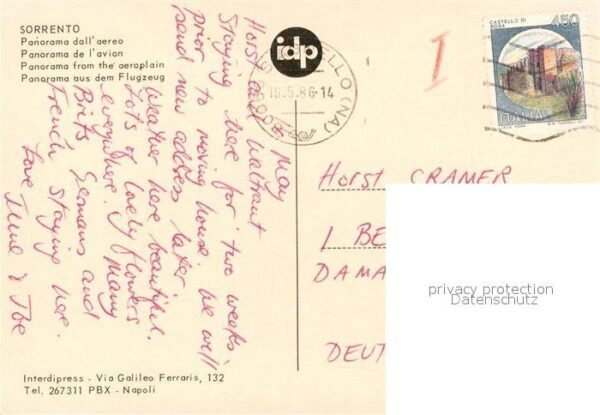 SORRENTO
Panorama dall'aereo
Panorama de l'avion
Panorama from the aeroplain
Panorama aus dem Flugzeug
idp
CASTELLO DI
ROSA
450
ITALIA
ELLO (NA)
16.5.86-14
May
Horst and Waltraut
Staying here for two weeks
prior to moving house. We will
send new address later
Weather here beautiful.
Lots of lovely flowers
everywhere. Many
Brits Germans and
French staying here.
Love June & Joe
Horst CRAMER
1 BE
DAMA
DEUT
privacy protection
Datenschutz
Interdipress - Via Galileo Ferraris, 132
Tel. 267311 PBX - Napoli